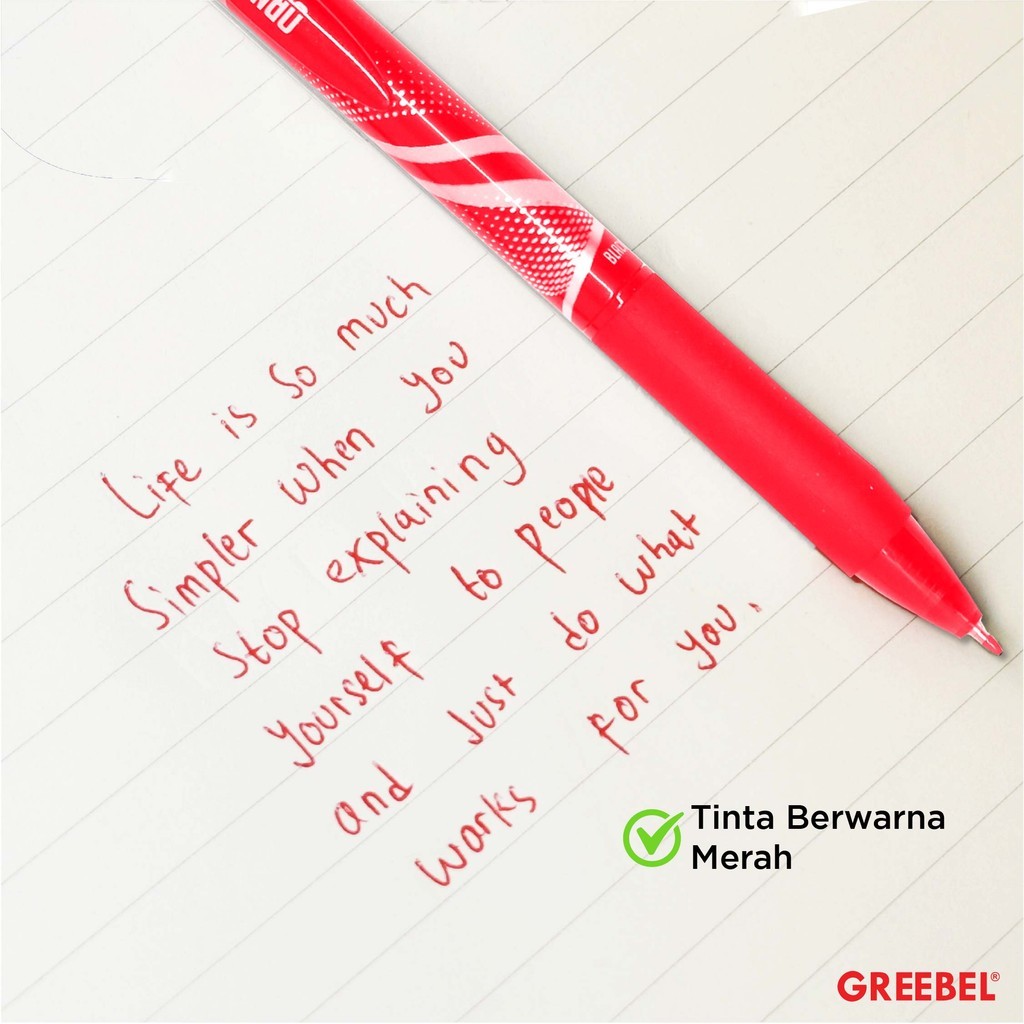 Life is so much
Simpler when you
Stop explaining
yourself to people
and Just do what
works for you.
Tinta Berwarna
Merah
GREEBEL®